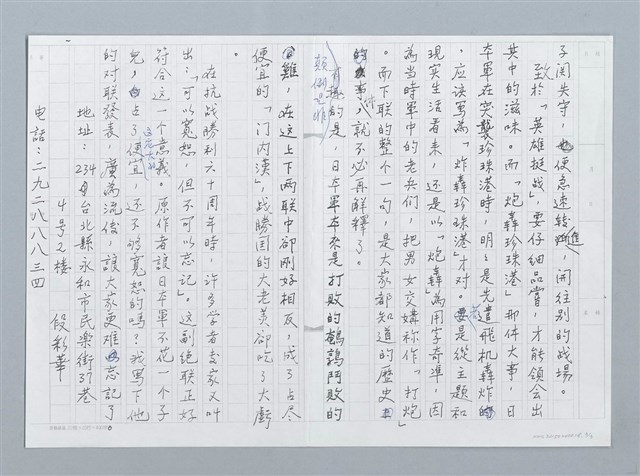 子関失守，便急速转進，開往別的战場。
致於「英雄挺战」，要仔細品嘗，才能領会出
其中的滋味。而「炮轟珍珠港」那件大事，日
本軍在突襲珍珠港時，明明是先遣飛机轟炸的
。应該写為「炸轟珍珠港」才对。若是從主題和
現实生活看来，还是以「炮轟」為用字奇準，因
為当時軍中的老兵们，把男女交媾称作「打炮」
。而下联的整个一句，是大家都知道的歷史
事件，就不必再解釋了。
有趣的是，日本軍本来是打敗的鵪鶉鬥敗的
雞，在这上下两联中卻剛好相反，成了占尽
顛倒是非
便宜的「门内漢」，战勝国的大老美卻吃了大虧
。
在抗战勝利六十周年時，許多学者专家又叫
出：「可以寬恕，但不可以忘記」。这副绝联正好
符合这一个意義。原作者讓日本軍不花一个子
兒，占了这庅大的便宜，还不夠寬恕的嗎？我写下他
的对联發表，廣為流傳，讓大家更难忘記了
。
地址：234台北縣永和市民樂街37巷
4号2楼 段彩華
电話：二九二八八八三四